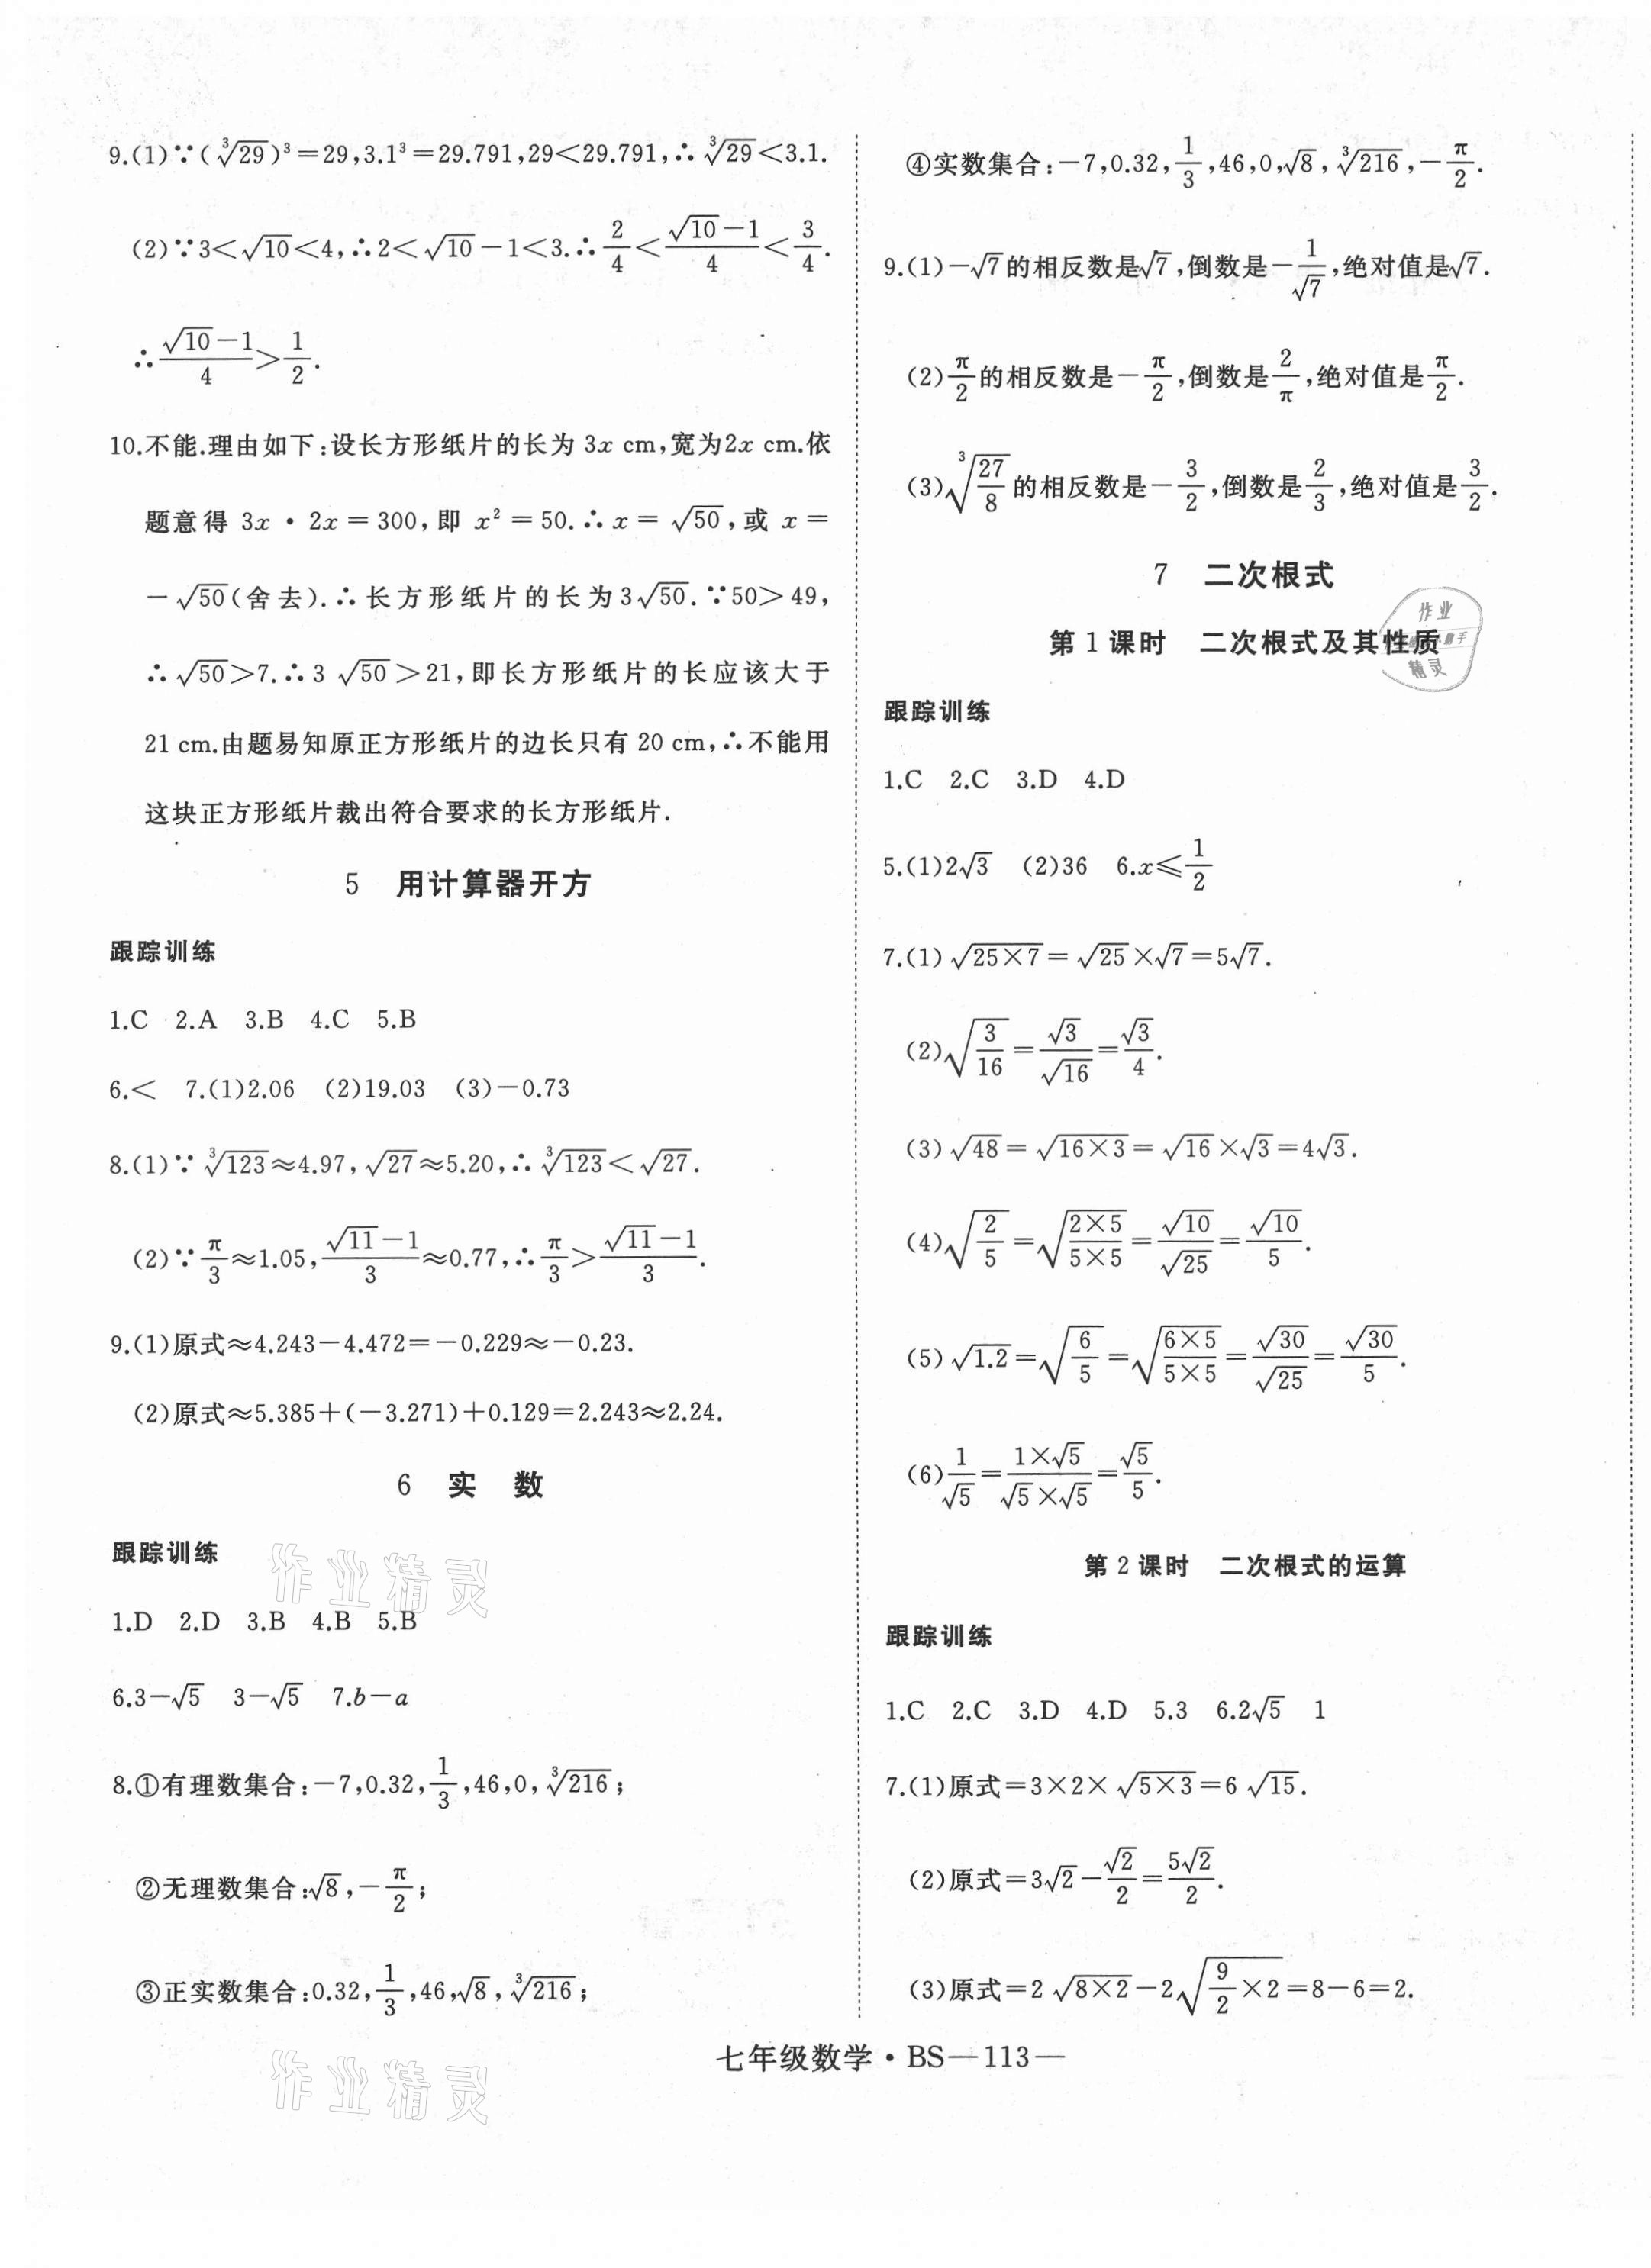 9.(1)∵(∛29)³=29,3.1³=29.791,29<29.791,∴∛29<3.1.
(2)∵3<√10<4,∴2<√10-1<3.∴2/4<(√10-1)/4<3/4.
∴(√10-1)/4>1/2.
10.不能.理由如下:设长方形纸片的长为 3x cm,宽为2x cm.依
题意得 3x·2x=300,即 x²=50.∴x=√50,或 x=
-√50(舍去).∴长方形纸片的长为3√50.∵50>49,
∴√50>7.∴3√50>21,即长方形纸片的长应该大于
21 cm.由题易知原正方形纸片的边长只有 20 cm,∴不能用
这块正方形纸片裁出符合要求的长方形纸片.
5 用计算器开方
跟踪训练
1.C 2.A 3.B 4.C 5.B
6.< 7.(1)2.06 (2)19.03 (3)-0.73
8.(1)∵∛123≈4.97,√27≈5.20,∴∛123<√27.
(2)∵π/3≈1.05,(√11-1)/3≈0.77,∴π/3>(√11-1)/3.
9.(1)原式≈4.243-4.472=-0.229≈-0.23.
(2)原式≈5.385+(-3.271)+0.129=2.243≈2.24.
6 实 数
跟踪训练
1.D 2.D 3.B 4.B 5.B
6.3-√5 3-√5 7.b-a
8.①有理数集合:-7,0.32,1/3,46,0,∛216;
②无理数集合:√8,-π/2;
③正实数集合:0.32,1/3,46,√8,∛216;
④实数集合:-7,0.32,1/3,46,0,√8,∛216,-π/2.
9.(1)-√7的相反数是√7,倒数是-1/√7,绝对值是√7.
(2)π/2的相反数是-π/2,倒数是2/π,绝对值是π/2.
(3)∛(27/8)的相反数是-3/2,倒数是2/3,绝对值是3/2.
7 二次根式
第1课时 二次根式及其性质
跟踪训练
1.C 2.C 3.D 4.D
5.(1)2√3 (2)36 6.x≤1/2
7.(1)√(25×7)=√25×√7=5√7.
(2)√(3/16)=√3/√16=√3/4.
(3)√48=√(16×3)=√16×√3=4√3.
(4)√(2/5)=√((2×5)/(5×5))=√10/√25=√10/5.
(5)√1.2=√(6/5)=√((6×5)/(5×5))=√30/√25=√30/5.
(6)1/√5=(1×√5)/(√5×√5)=√5/5.
第2课时 二次根式的运算
跟踪训练
1.C 2.C 3.D 4.D 5.3 6.2√5 1
7.(1)原式=3×2×√(5×3)=6√15.
(2)原式=3√2-√2/2=5√2/2.
(3)原式=2√(8×2)-2√(9/2×2)=8-6=2.
七年级数学·BS—113—
作业精灵
作业精灵
作业
精灵